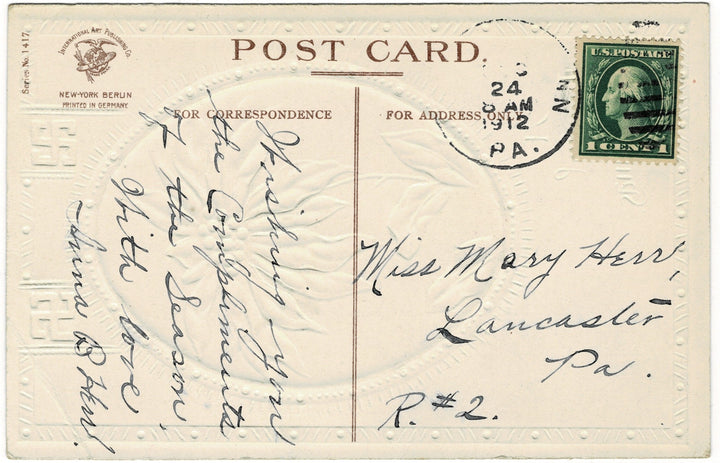 Series No. 1417.
INTERNATIONAL ART PUBLISHING CO.
NEW-YORK BERLIN
PRINTED IN GERMANY
POST CARD.
FOR CORRESPONDENCE
FOR ADDRESS ONLY
24
8 AM
1912
PA.
U.S. POSTAGE
1 CENT 1
Wishing you
the Compliments
of the Season,
With love
Anna B Herr.
Miss Mary Herr,
Lancaster
Pa.
R. #2.